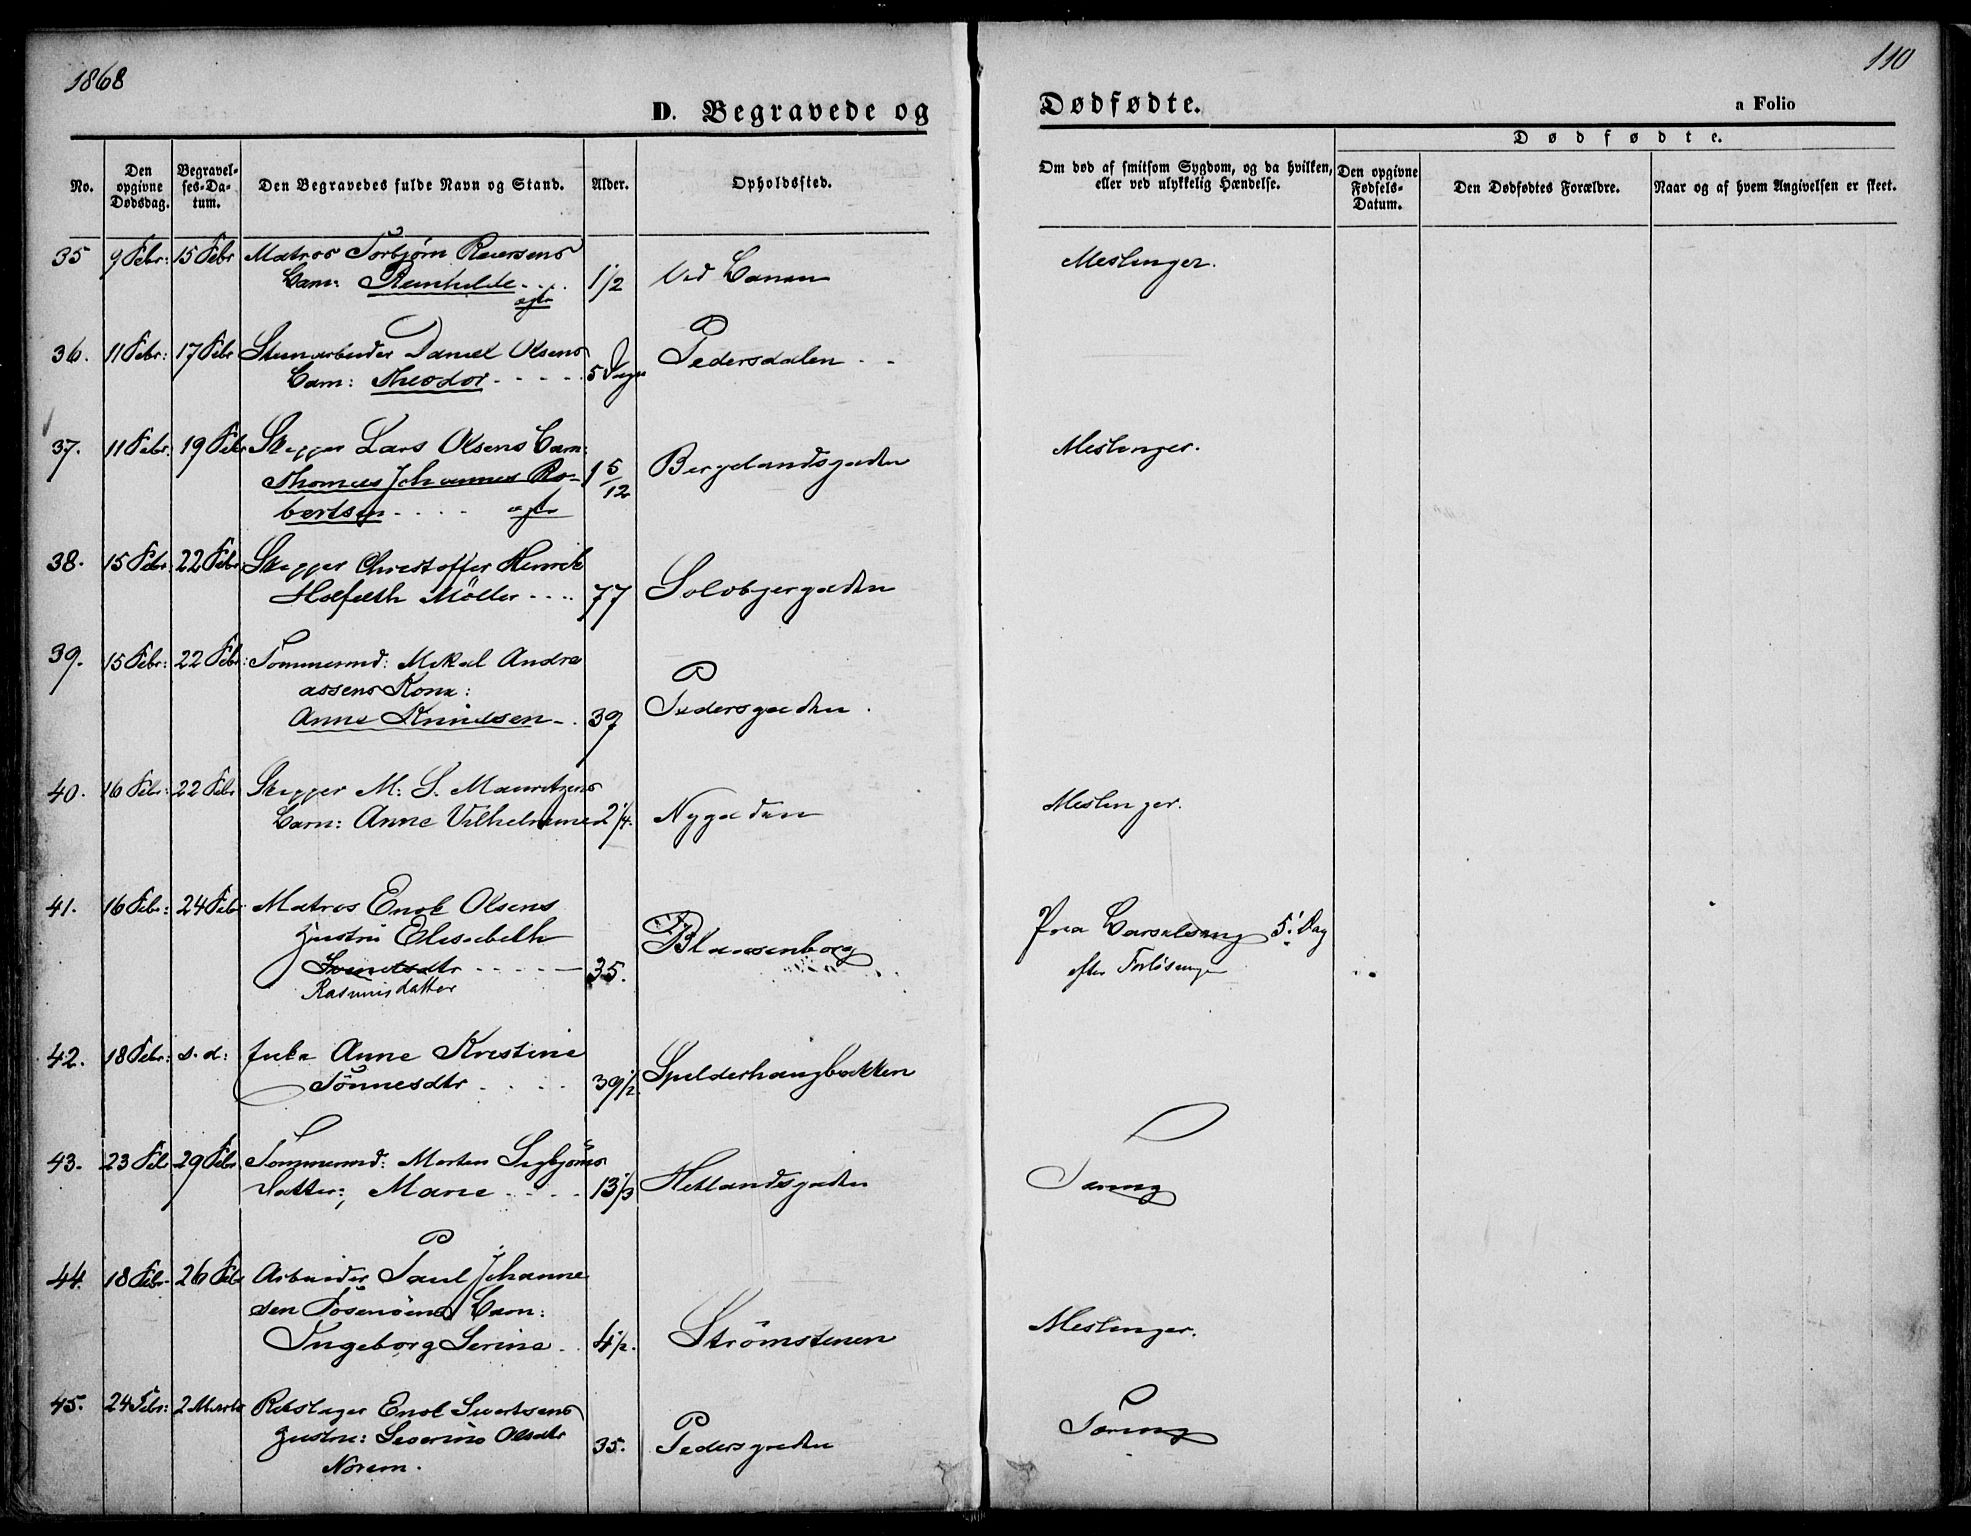 1868
110
D. Begravede og Dødfødte.
a Folio
No.
Den opgivne Dødsdag.
Begravelses-Datum.
Den Begravedes fulde Navn og Stand.
Alder.
Opholdssted.
Om død af smitsom Sygdom, og da hvilken, eller ved ulykkelig Hændelse.
Dødfødte.
Den opgivne Fødsels-Datum.
Den Dødfødtes Forældre.
Naar og af hvem Angivelsen er skeet.
35 9 Febr: 15 Febr Matros Torbjørn Reiersens
Barn: Reinhilde 1 1/2 Ved Banen Meslinger.
ægte
36. 11 Febr: 17 Febr Steinarbeider Daniel Olsens
Barn: Theodor 5 Dage Pedersdalen
37. 11 Febr: 19 Febr Skipper Lars Olsens Barn:
Thomas Johannes Ro- 1 5/12 Bergelandsgaden Meslinger.
bertsen ægte
38. 15 Febr: 22 Febr: Skipper Christoffer Henrik
Møller 77 Solvbjergaden
39. 15 Febr: 22 Febr: Tømmermd: Mikal Andre
assens Kone:
Anne Knudsen 39 Pedersgaden.
40. 16 Febr: 22 Febr Skipper M: S. Mauritzens
Barn: Anne Vilhelmine 2 1/4. Nygaden Meslinger.
41. 16 Febr: 24 Febr Matros Enok Olsens
Hustru Elisabeth
35. Blaasenborg Paa Barselseng 5' Dag
Rasmusdatter efter Forløsningen
42. 18 Febr: s. d: Anne Kristine
Tønnesdtr 39 1/2. Spilderhaugbakken
43. 23 Febr 29 Febr. Tømmermd: Morten Sigbjørns
Datter; Marie 13 1/3 Hetlandsgaden Tæring
44. 18 Febr. 26 Febr Arbeider Paul Johanne
sen Fosenøens Barn:
Ingeborg Serine 4 1/2. Strømstenen Meslinger.
45. 24 Febr: 2 Marts Rebslager Enok Sivertsens
Hustru: Severine Olsdtr 35. Pedersgaden Tæring
Norem.